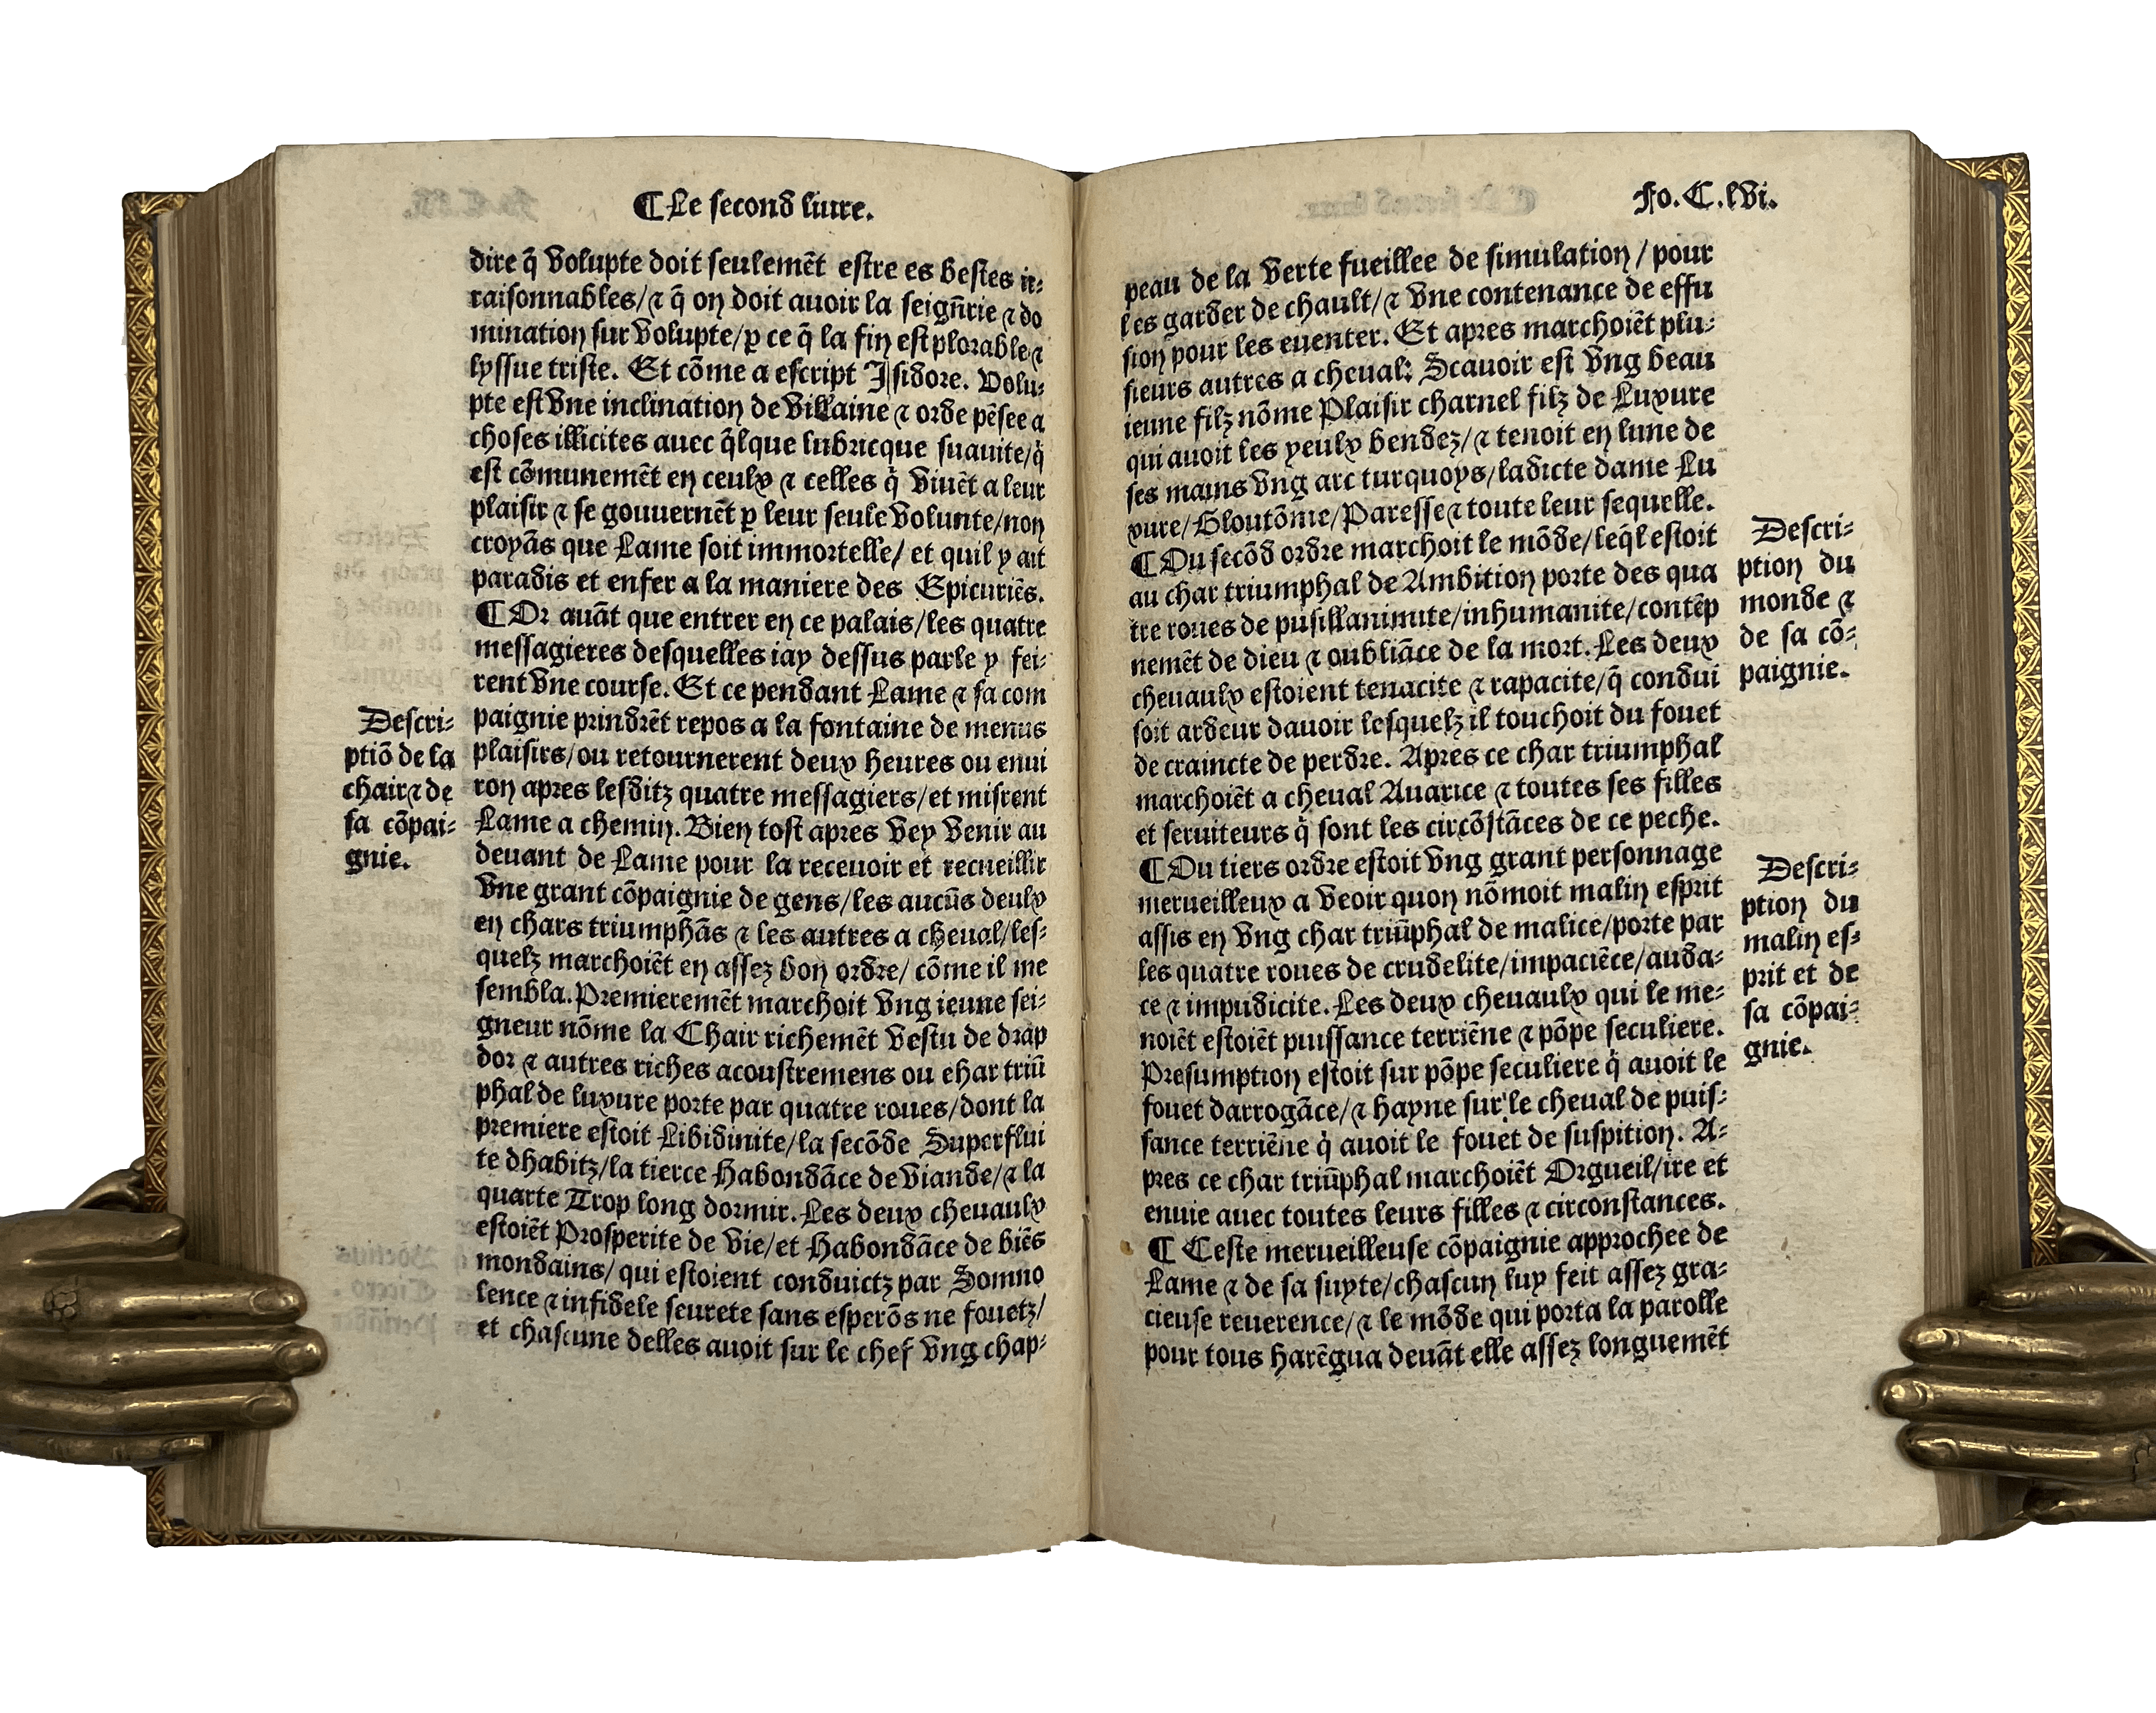 ¶ Le second liure.
dire q̃ volupte doit seulemẽt estre es bestes ir-
raisonnables/⁊ q̃ on doit auoir la seigñrie ⁊ do
mination sur volupte/ꝑ ce q̃ la fin est plorable ⁊
lyssue triste. Et cõme a escript Isidore. Volu-
pte est vne inclination de villaine ⁊ orde pẽsee a
choses illicites auec q̃lque lubricque suauite/q̃
est cõmunemẽt en ceulx ⁊ celles q̃ viuẽt a leur
plaisir ⁊ se gouuernẽt ꝑ leur seule volunte/non
croyãs que Lame soit immortelle/ et quil y ait
paradis et enfer a la maniere des Epicuriẽs.
¶ Or auãt que entrer en ce palais/les quatre
messagieres desquelles iay dessus parle y fei-
rent vne course. Et ce pendant Lame ⁊ sa com
paignie prindrẽt repos a la fontaine de menus
plaisirs/ou retournerent deux heures ou enui
ron apres lesditz quatre messagiers/et misrent
Lame a chemin. Bien tost apres vey venir au
deuant de Lame pour la receuoir et recueillir
vne grant cõpaignie de gens/les aucũs deulx
en chars triumphãs ⁊ les autres a cheual/les-
quelz marchoiẽt en assez bon ordre/ cõme il me
sembla. Premieremẽt marchoit vng ieune sei-
gneur nõme la Chair richemẽt vestu de drap
dor ⁊ autres riches acoustremens ou char triũ
phal de luxure porte par quatre roues/dont la
premiere estoit Libidinite/la secõde Superflui
te dhabitz/la tierce Habondãce de viande/⁊ la
quarte Trop long dormir. Les deux cheuaulx
estoiẽt Prosperite de vie/et Habondãce de biẽs
mondains/ qui estoient conduictz par Somno
lence ⁊ infidele seurete sans esperõs ne fouetz/
et chascune delles auoit sur le chef vng chap-
Descri-
ptiõ de la
chair ⁊ de
sa cõpai-
gnie.
Fo. C. lvi.
peau de la verte fueillee de simulation/ pour
les garder de chault/⁊ vne contenance de effu
sion pour les euenter. Et apres marchoiẽt plu-
sieurs autres a cheual: Scauoir est vng beau
ieune filz nõme Plaisir charnel filz de Luxure
qui auoit les yeulx bendez/⁊ tenoit en lune de
ses mains vng arc turquoys/ladicte dame Lu
xure/Gloutõnie/Paresse ⁊ toute leur sequelle.
¶ Ou secõd ordre marchoit le mõde/leq̃l estoit
au char triumphal de Ambition porte des qua
tre roues de pusillanimite/inhumanite/contẽp
nemẽt de dieu ⁊ oubliãce de la mort. Les deux
cheuaulx estoient tenacite ⁊ rapacite/q̃ condui
soit ardeur dauoir lesquelz il touchoit du fouet
de craincte de perdre. Apres ce char triumphal
marchoiẽt a cheual Auarice ⁊ toutes ses filles
et seruiteurs q̃ sont les circõstãces de ce peche.
¶ Ou tiers ordre estoit vng grant personnage
merueilleux a veoir quon nõmoit malin esprit
assis en vng char triũphal de malice/porte par
les quatre roues de crudelite/impaciẽce/auda-
ce ⁊ impudicite. Les deux cheuaulx qui le me-
noiẽt estoiẽt puissance terriẽne ⁊ põpe seculiere.
Presumption estoit sur põpe seculiere q̃ auoit le
fouet darrogãce/⁊ hayne sur le cheual de puis-
sance terriẽne q̃ auoit le fouet de suspition. A-
pres ce char triũphal marchoiẽt Orgueil/ire et
enuie auec toutes leurs filles ⁊ circonstances.
¶ Ceste merueilleuse cõpaignie approchee de
Lame ⁊ de sa suyte/chascun luy feit assez gra-
cieuse reuerence/⁊ le mõde qui porta la parolle
pour tous harẽgua deuãt elle assez longuemẽt
Descri-
ption du
monde ⁊
de sa cõ-
paignie.
Descri-
ption du
malin es-
prit et de
sa cõpai-
gnie.